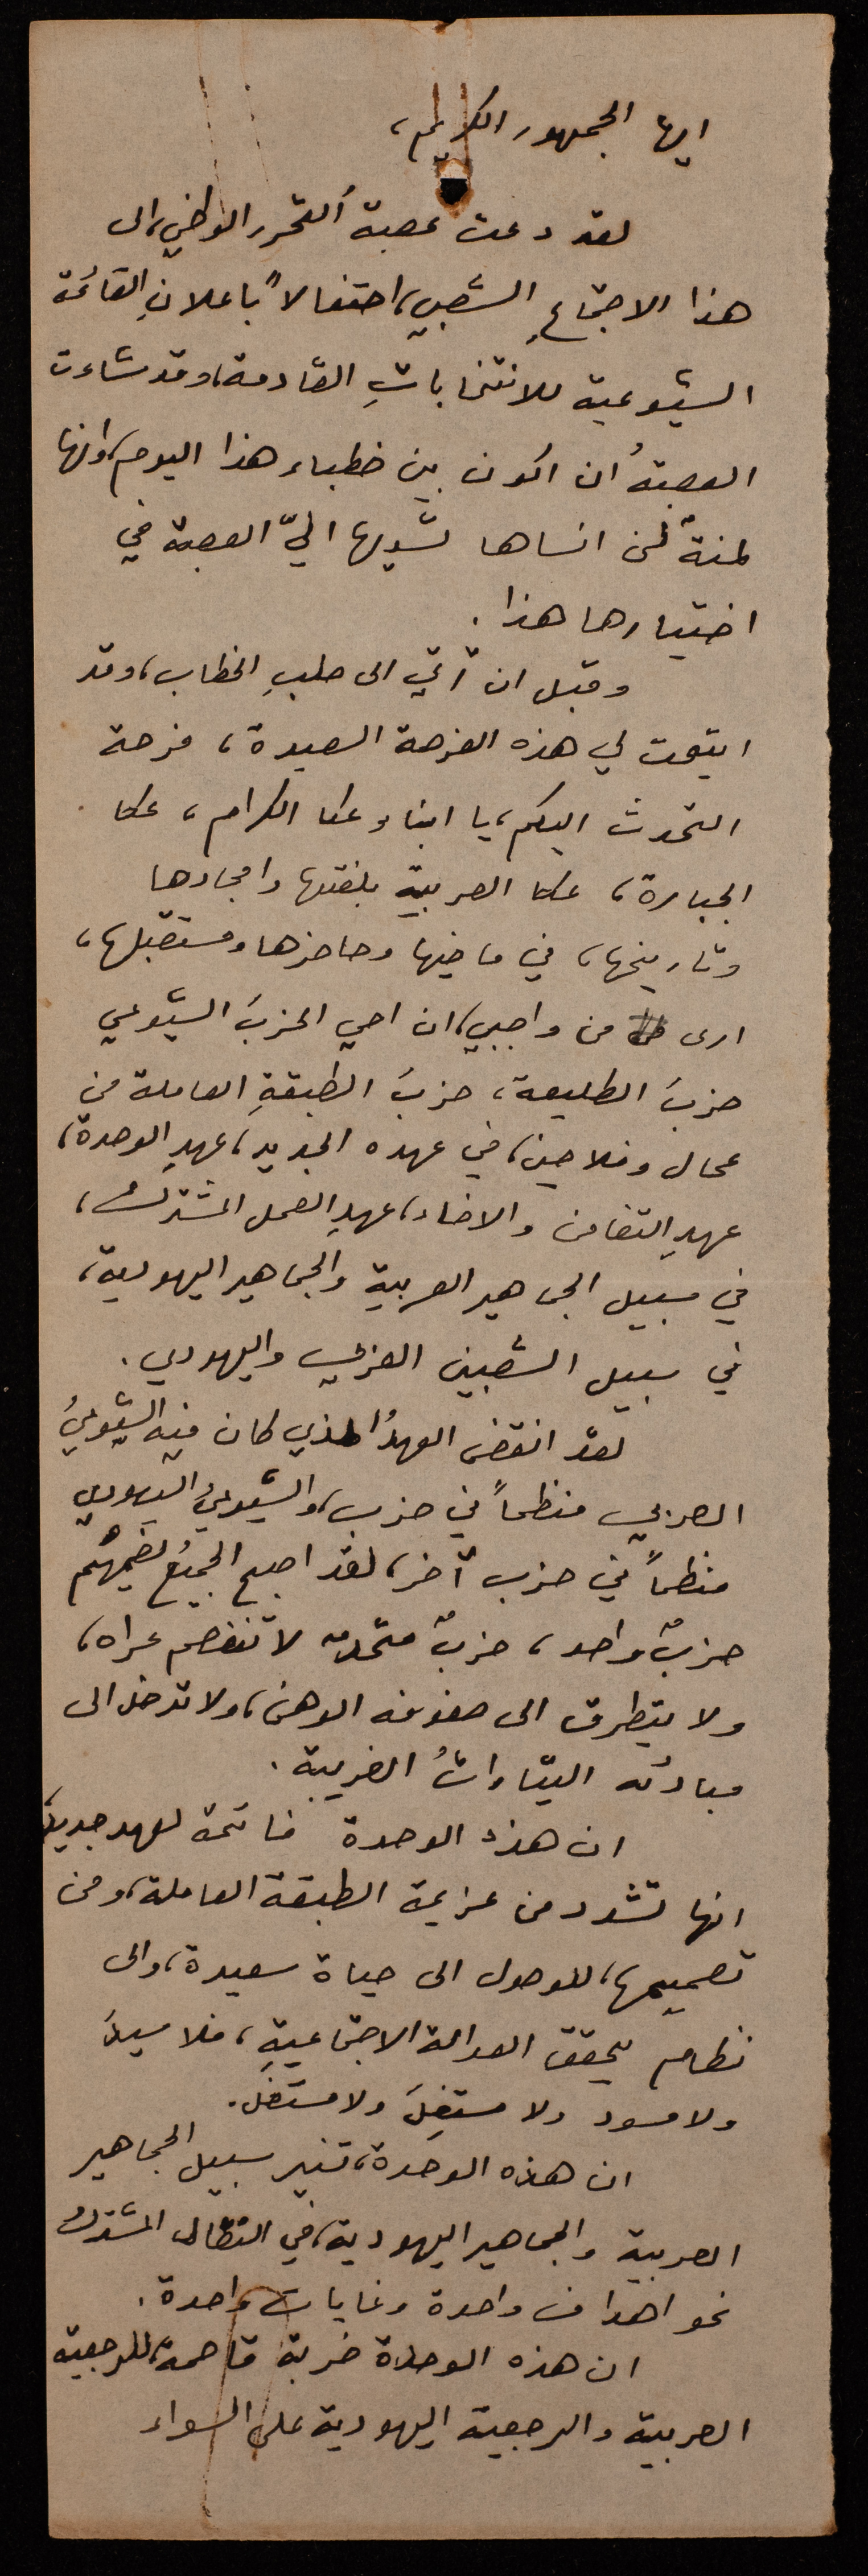 ايها الجمهور الكريم،
لقد دعت عصبة التحرر الوطني، الى
هذا الاجتماعِ الشعبي، احتفالاً باعلانِ القائمة
الشيوعية للانتخاباتِ القادمة، وقد شاءت
العصبةُ ان اكون بين خطباء هذا اليوم، وانها
لمنةٌ لن انساها تسديها اليّ العصبة في
اختيارها هذا.
وقبل ان آتي الى صلبِ الخطاب، وقد
اتيحت لي هذه الفرصة السعيدة، فرصة
التحدث اليكم، يا ابناء عكا الكرام، عكا
الجبارة، عكا العربية بلغتها وامجادها
وتاريخها، في ماضيها وحاضرها ومستقبلها،
ارى من واجبي، ان احي الحزبَ الشيوعي
حزبَ الطليعة، حزبَ الطبقةِ العاملة من
عمال وفلاحين، في عهده الجديد، عهدِ الوحدة،
عهدِ التضامن والاخاء، عهدِ العمل المشترك،
في سبيل الجماهير العربية والجماهير اليهودية،
في سبيل الشعبين العربي واليهودي.
لقد انقضى العهدُ الذي كان فيه الشيوعيُ
العربي منظماً في حزب، والشيوعيُ اليهودي
منظماً في حزب آخر، لقد اصبح الجميعُ يضمهُم
حزبٌ واحد، حزبٌ متحدٌ لا تنفصم عراه،
ولا يتطرق الى صفوفه الوهن، ولا تدخل الى
مبادئه التياراتُ الغريبة.
ان هذه الوحدة فاتحة لعهد جديد،
انها تشدد من عزيمة الطبقة العاملة، ومن
تصميمها، للوصول الى حياة سعيدة، والى
نظام يحقق العدالة الاجتماعيةِ، فلا سيدَ
ولا مسود ولا مستغِلَ ولا مستغَل.
ان هذه الوحدة، تنير سبيل الجماهير
العربية والجماهير اليهودية، في النضال المشترك
نحو اهداف واحدة وغايات واحدة.
ان هذه الوحدة ضربة قاصمة، للرجعية
العربية والرجعية اليهودية على السواء